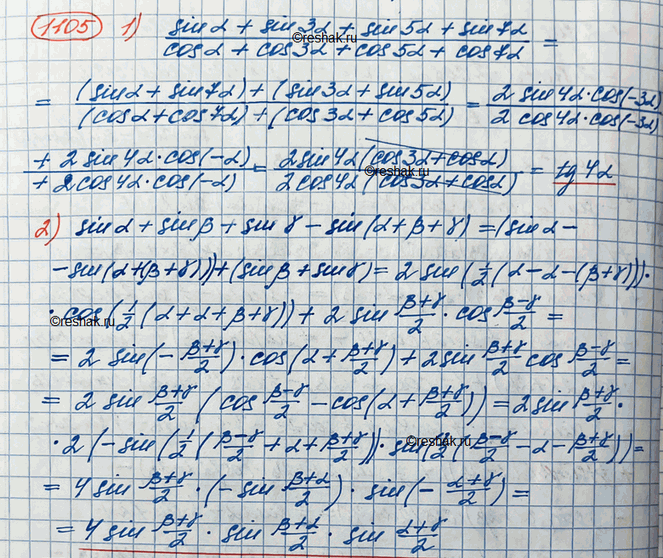 1105 1) (sin α + sin 3α + sin 5α + sin 7α)/(cos α + cos 3α + cos 5α + cos 7α) =
= ((sin α + sin 7α) + (sin 3α + sin 5α))/((cos α + cos 7α) + (cos 3α + cos 5α)) = (2 sin 4α · cos(-3α))/(2 cos 4α · cos(-3α))
(+ 2 sin 4α · cos(-α))/(+ 2 cos 4α · cos(-α)) = (2 sin 4α (cos 3α + cos α))/(2 cos 4α (cos 3α + cos α)) = tg 4α
2) sin α + sin β + sin γ - sin(α + β + γ) = (sin α -
- sin(α + (β + γ))) + (sin β + sin γ) = 2 sin(1/2(α - α - (β + γ))) ·
· cos(1/2(α + α + β + γ)) + 2 sin (β+γ)/2 · cos (β-γ)/2 =
= 2 sin(-(β+γ)/2) · cos(α + (β+γ)/2) + 2 sin (β+γ)/2 cos (β-γ)/2 =
= 2 sin (β+γ)/2 (cos (β-γ)/2 - cos(α + (β+γ)/2)) = 2 sin (β+γ)/2 ·
· 2 (-sin(1/2((β-γ)/2 + α + (β+γ)/2)) · sin(1/2((β-γ)/2 - α - (β+γ)/2)) =
= 4 sin (β+γ)/2 · (-sin (β+α)/2) · sin(-(α+γ)/2) =
= 4 sin (β+γ)/2 · sin (β+α)/2 · sin (α+γ)/2
©reshak.ru
©reshak.ru
©reshak.ru
©reshak.ru